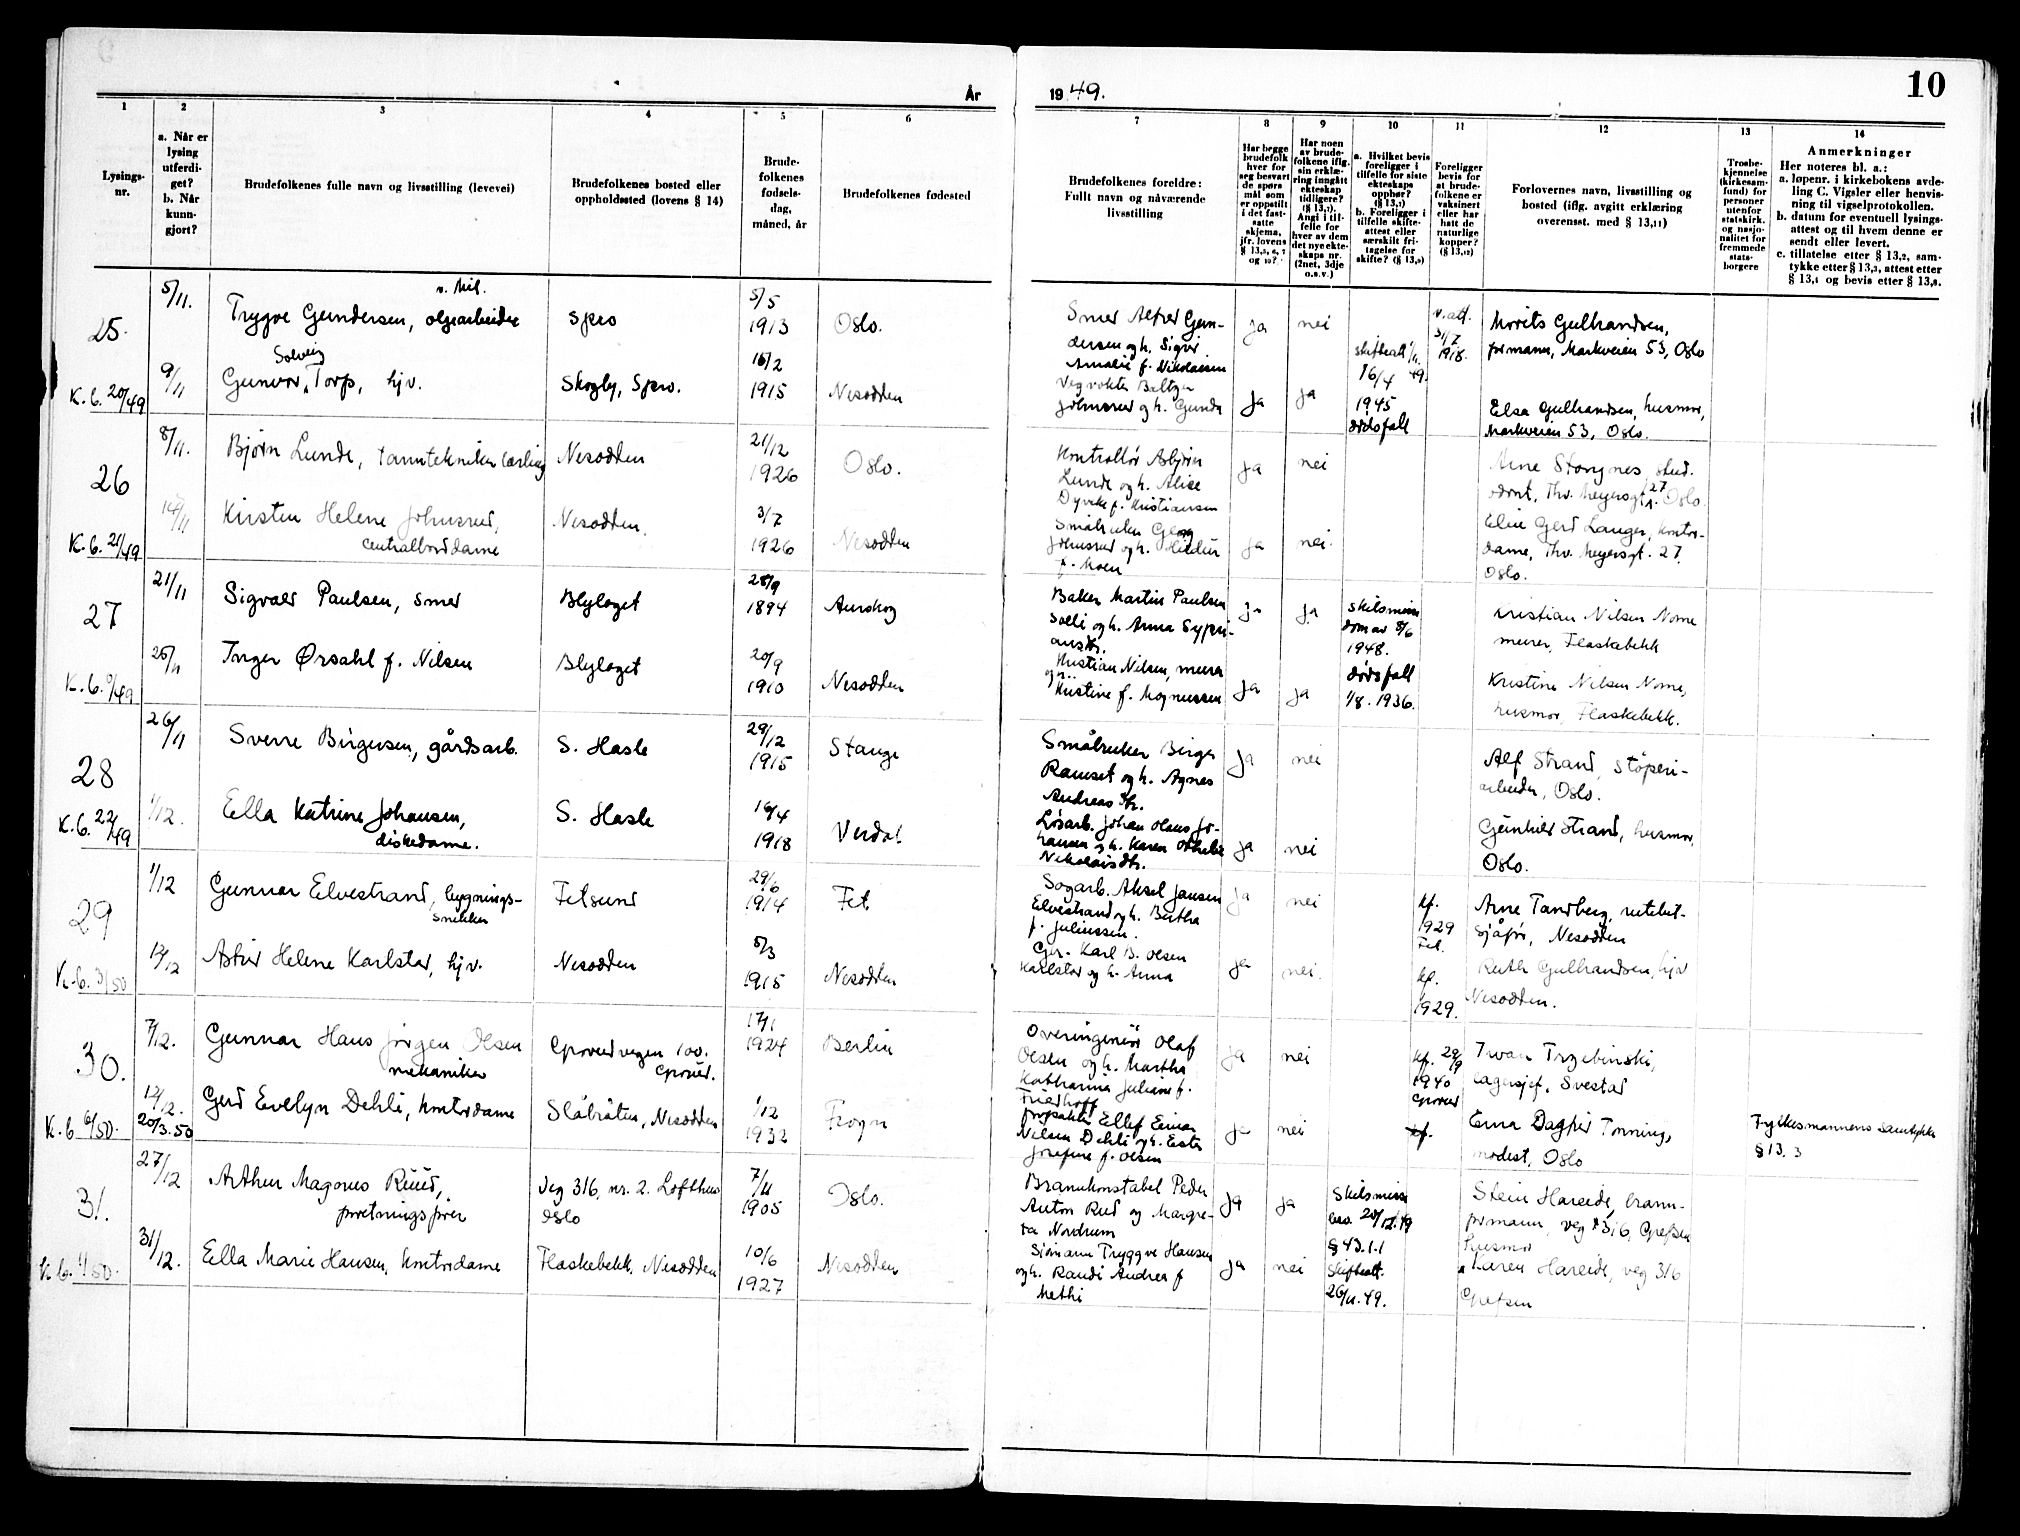 År 1949. 10
1
Lysings-
nr.
2
a. Når er
lysing
utferdi-
get?
b. Når
kunn-
gjort?
3
Brudefolkenes fulle navn og livsstilling (levevei)
4
Brudefolkenes bosted eller
oppholdssted (lovens § 14)
5
Brude-
folkenes
fødsels-
dag,
måned, år
6
Brudefolkenes fødested
7
Brudefolkenes foreldre:
Fullt navn og nåværende
livsstilling
8
Har begge
brudefolk
hver for
seg besvart
de spørs-
mål som
er oppstilt
i det fast-
satte
skjema,
jfr. lovens
§ 13,5, 6, 7
og 10?
9
Har noen
av brude-
folkene iflg.
sin erklæ-
ring inngått
ekteskap
tidligere?
(§ 13,7)
Angi i til-
felle for
hver av dem
det nye ekte-
skaps nr.
(2net, 3dje
o.s.v.)
10
a. Hvilket bevis
foreligger i
tilfelle for siste
ekteskaps
opphør?
(§ 13,7)
b. Foreligger i
tilfelle skifte-
attest eller
særskilt fri-
tagelse for
skifte? (§ 13,9)
11
Foreligger
bevis for
at brude-
folkene er
vaksinert
eller har
hatt de
naturlige
kopper?
(§ 13,12)
12
Forlovernes navn, livsstilling og
bosted (iflg. avgitt erklæring
overensst. med § 13,11)
13
Trosbe-
kjennelse
(kirkesam-
fund) for
personer
utenfor
statskirk.
og nasjo-
nalitet for
fremmede
stats-
borgere
14
Anmerkninger
Her noteres bl. a.:
a. løpenr. i kirkebokens avde-
ling C. Vigsler eller henvis-
ning til vigselprotokollen.
b. datum for eventuell lysings-
attest og til hvem denne er
sendt eller levert.
c. tillatelse etter § 13,2, sam-
tykke etter § 13,3, attest etter
§ 13,4 og bevis etter § 13,8.
25.
K.b. 20/49
5/11.
Trygve Gundersen,
Spro
5/5
1913
Oslo.
Smed Alfred Gun-
dersen og h. Sigrid
Amalie f. Nikolaisen
ja
nei
v. att.
31/7
1918.
Morits Gulbrandsen,
formann, Markveien 53, Oslo
9/11
Solveig
Gunvor Torp, hjv.
Skogly, Spro.
16/2
1915
Nesodden
Vegvokter Baltzer
Johnsrud og h. Gunda
ja
ja
skifteatt 1/11.49.
16/4
1945
dødsfall
Elsa Gulbrandsen, husmor,
Markveien 53, Oslo.
26
K.b. 21/49
8/11.
Bjørn Lunde, tanntekniker lærling
Nesodden
21/12
1926
Oslo.
Kontrollør Asbjørn
Lunde og h. Alice
Dyveke f. Kristiansen
ja
nei
Arne Stangnes stud.
odont, Thv. Meyersgt 27 Oslo
14/11
Kirsten Helene Johnsrud,
centralborddame
Nesodden.
3/7
1926
Nesodden
Småbruker Georg
Johnsrud og h. Hildur
f. Moen
ja
nei.
Elin Gerd Langer, kontor-
dame, Thv. Meyersgt. 27
Oslo.
27
21/11
Sigvald Paulsen, smed
Blylaget
28/9
1894
Aurskog
Baker Martin Paulsen
Solli og h. Anna Sypri-
ansdtr.
ja
ja
skilsmisse
dom av 8/6
1948.
Kristian Nilsen Nome
murer, Flaskebekk
25/11
Inger Ørsahl f. Nilsen
Blylaget
20/9
1910
Nesodden
Kristian Nilsen, murer
og h.
Kristine f. Magnussen
ja
ja
dødsfall
1/8. 1936.
Kristine Nilsen Nome,
husmor, Flaskebekk.
28
K.b. 22/49
26/11
Sverre Birgersen, gårdsarb.
S. Hasle
29/12
1915
Stange
Småbruker Birger
Ramset og h. Agnes
Andreasdtr.
ja
nei
Alf Strand, støperi-
arbeider, Oslo.
1/12.
Ella Katrine Johansen,
diskedame.
S. Hasle
16/4
1918
Verdal
Løsarb. Johan Olaus Jo-
hansen og h. Karen Othelie
Nikolaisdtr.
ja
nei
Gunhild Strand, husmor,
Oslo.
29
K.b. 3/50
1/12
Gunnar Elvestrand, bygnings-
snekker
Fetsund
29/6
1914
Fet
Sagarb. Aksel Jansen
Elvestrand og h. Bertha
f. Juliussen.
ja
nei
kf.
1929
Fet.
Arne Tandberg, rutebil-
sjåfør, Nesodden
12/12
Astrid Helene Karlstad, hjv.
Nesodden
5/3
1915
Nesodden
Karl B. Olsen
Karlstad og h. Anna
ja
nei.
kf.
1929.
Ruth Gulbrandsen, hjv
Nesodden.
30.
K.b. 6/50.
7/12.
Gunnar Hans Jørgen Olsen
mekaniker
Grorudvegen 100.
Grorud.
17/1
1924
Berlin
Overingeniør Olaf
Olsen og h. Martha
Katharina Juliane f.
Friedhoff
ja
nei
kf. 29/9
1940
Grorud
Iwan Trzebinski,
lagersjef, Svestad
12/12.
20/3.50
Gerd Evelyn Dehli, kontordame
Slåbråten, Nesodden
1/12
1932
Frogn
Forpakter Ellef Einar
Nilsen Dehli og h. Ester
Josefine f. Olsen
ja
nei
kf.
Erna Dagfrid Tonning,
modist, Oslo
Fylkesmannens samtykke
§ 13. 3
31.
K.b. 1/50.
27/12
Arthur Magnus Ruud,
forretningsfører
Veg 316, nr. 2. Lofthus
Oslo
7/11
1905
Oslo.
Brannkonstabel Peder
Anton Rud og Margre-
te Nordrum
ja
ja
Skilsmisse
bev. 20/12.49
§ 43.1.1
Skifteatt.
26/11.49.
Stein Hareide, brann-
formann, veg 316, Grefsen
31/12.
Ella Marie Hansen, kontordame
Flaskebekk, Nesodden
10/6
1927
Nesodden
Sjømann Tryggve Hansen
og h. Randi Andrea f
Methi
ja
nei
husmor
Hareide, veg 316
Grefsen